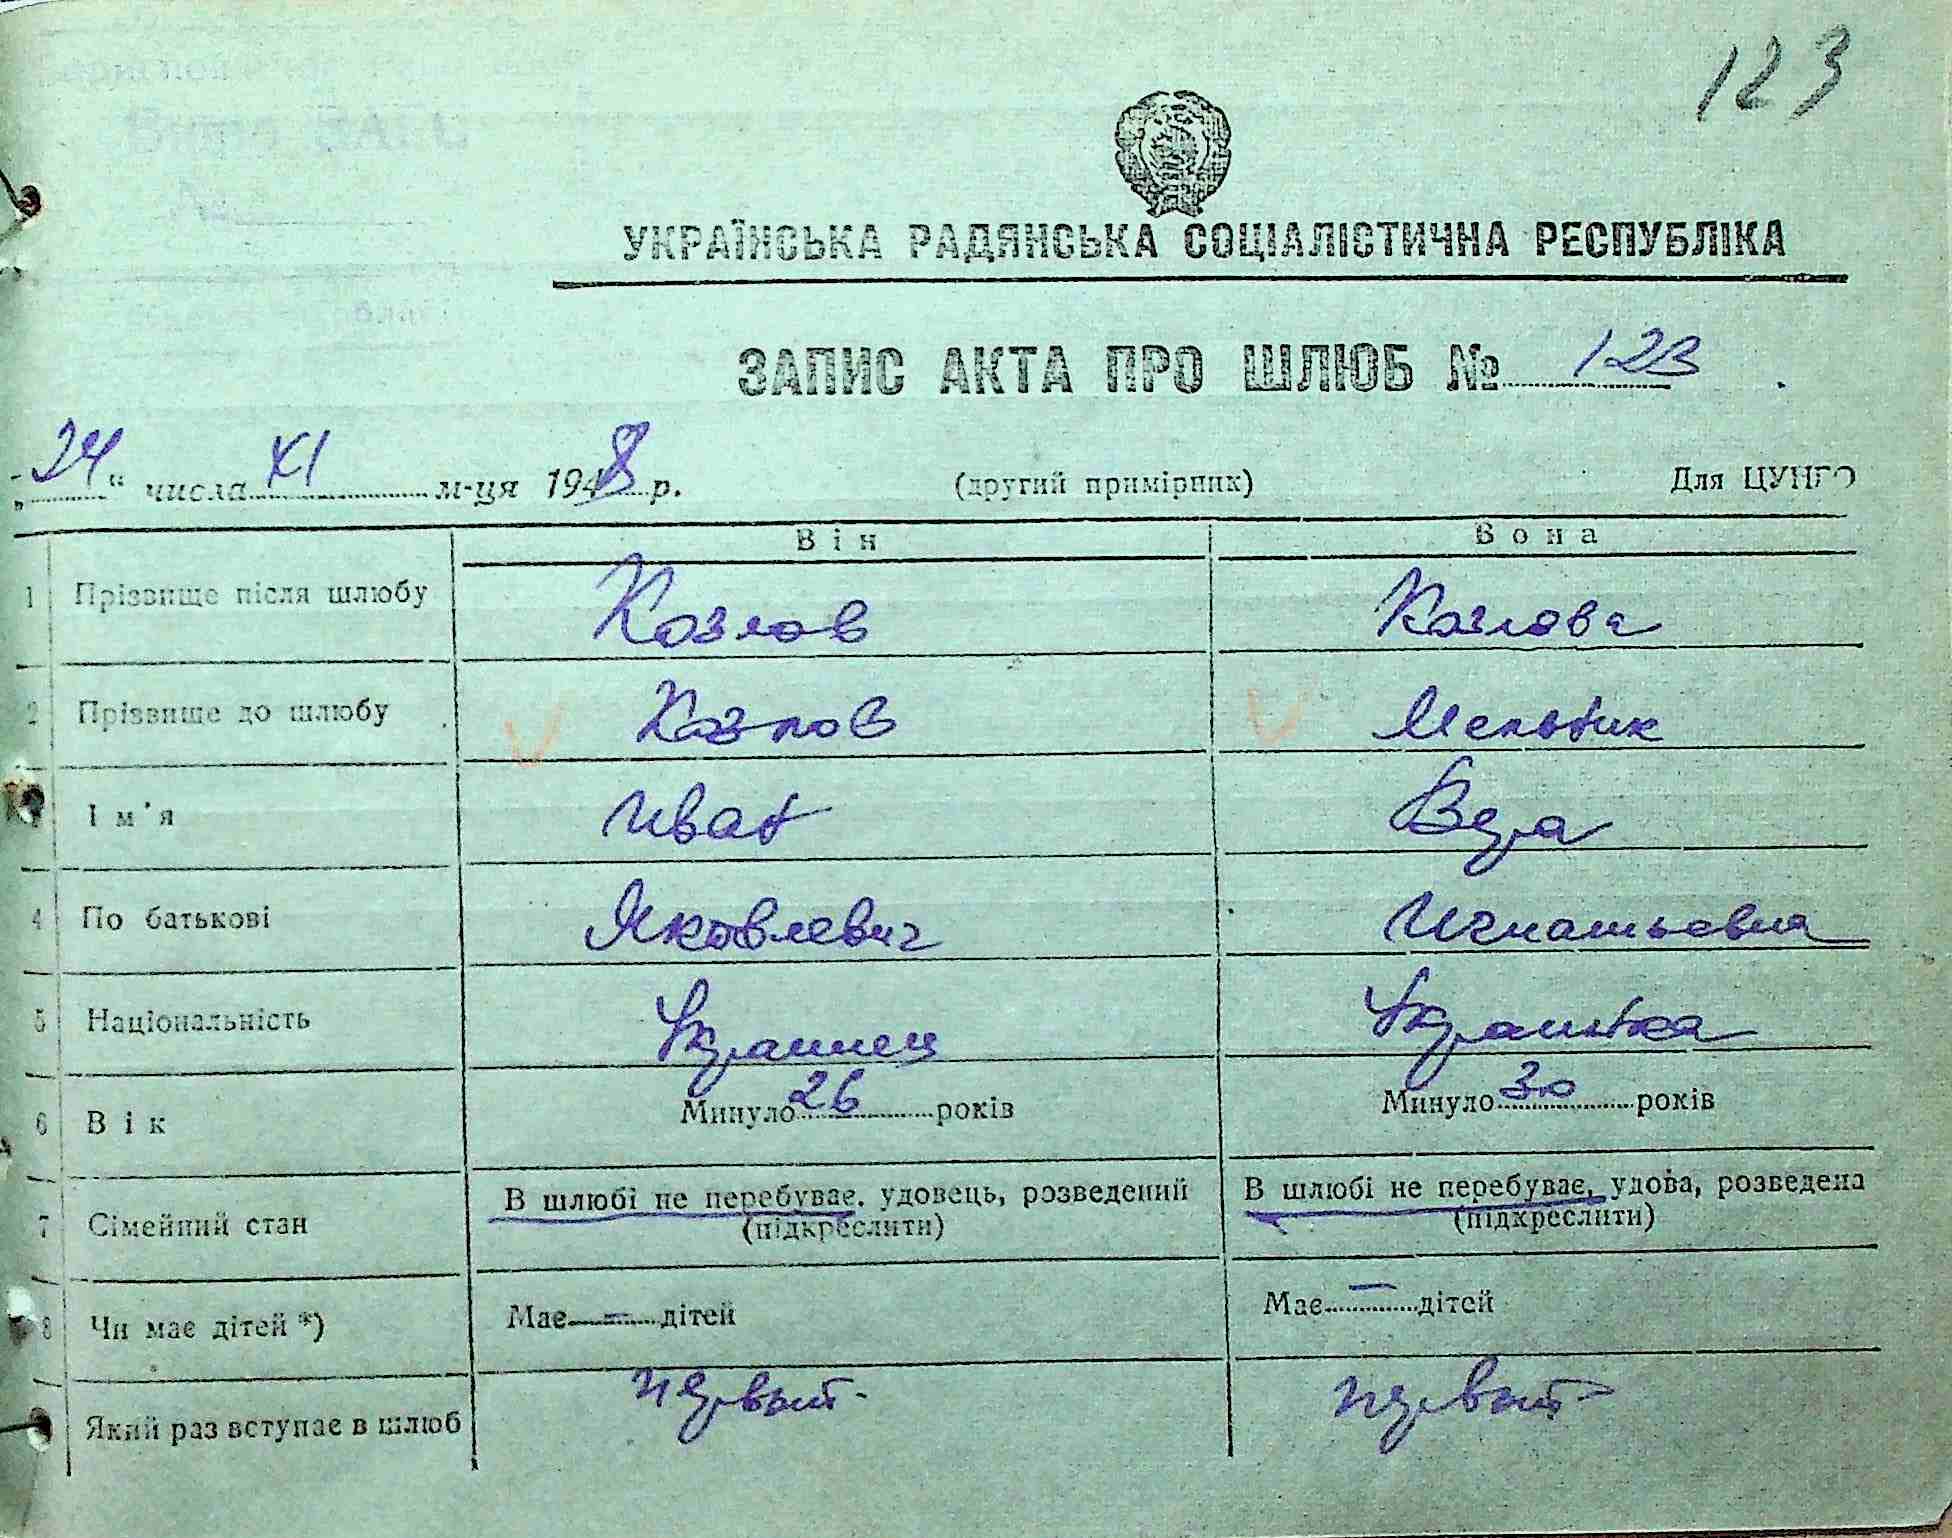 123
УКРАЇНСЬКА РАДЯНСЬКА СОЦІАЛІСТИЧНА РЕСПУБЛІКА
ЗАПИС АКТА ПРО ШЛЮБ № 123
„24“ числа XI м-ця 1948 р. (другий примірник) Для ЦУНГО
Він Вона
1 Прізвище після шлюбу Козлов Козлова
2 Прізвище до шлюбу Козлов Мельник
Ім'я Иван Вера
4 По батькові Яковлевич Игнатьевна
5 Національність Украинец Украинка
6 Вік Минуло 26 років Минуло 30 років
7 Сімейний стан В шлюбі не перебуває, удовець, розведений В шлюбі не перебуває, удова, розведена
(підкреслити) (підкреслити)
8 Чи має дітей *) Має — дітей Має — дітей
Який раз вступає в шлюб первый первый